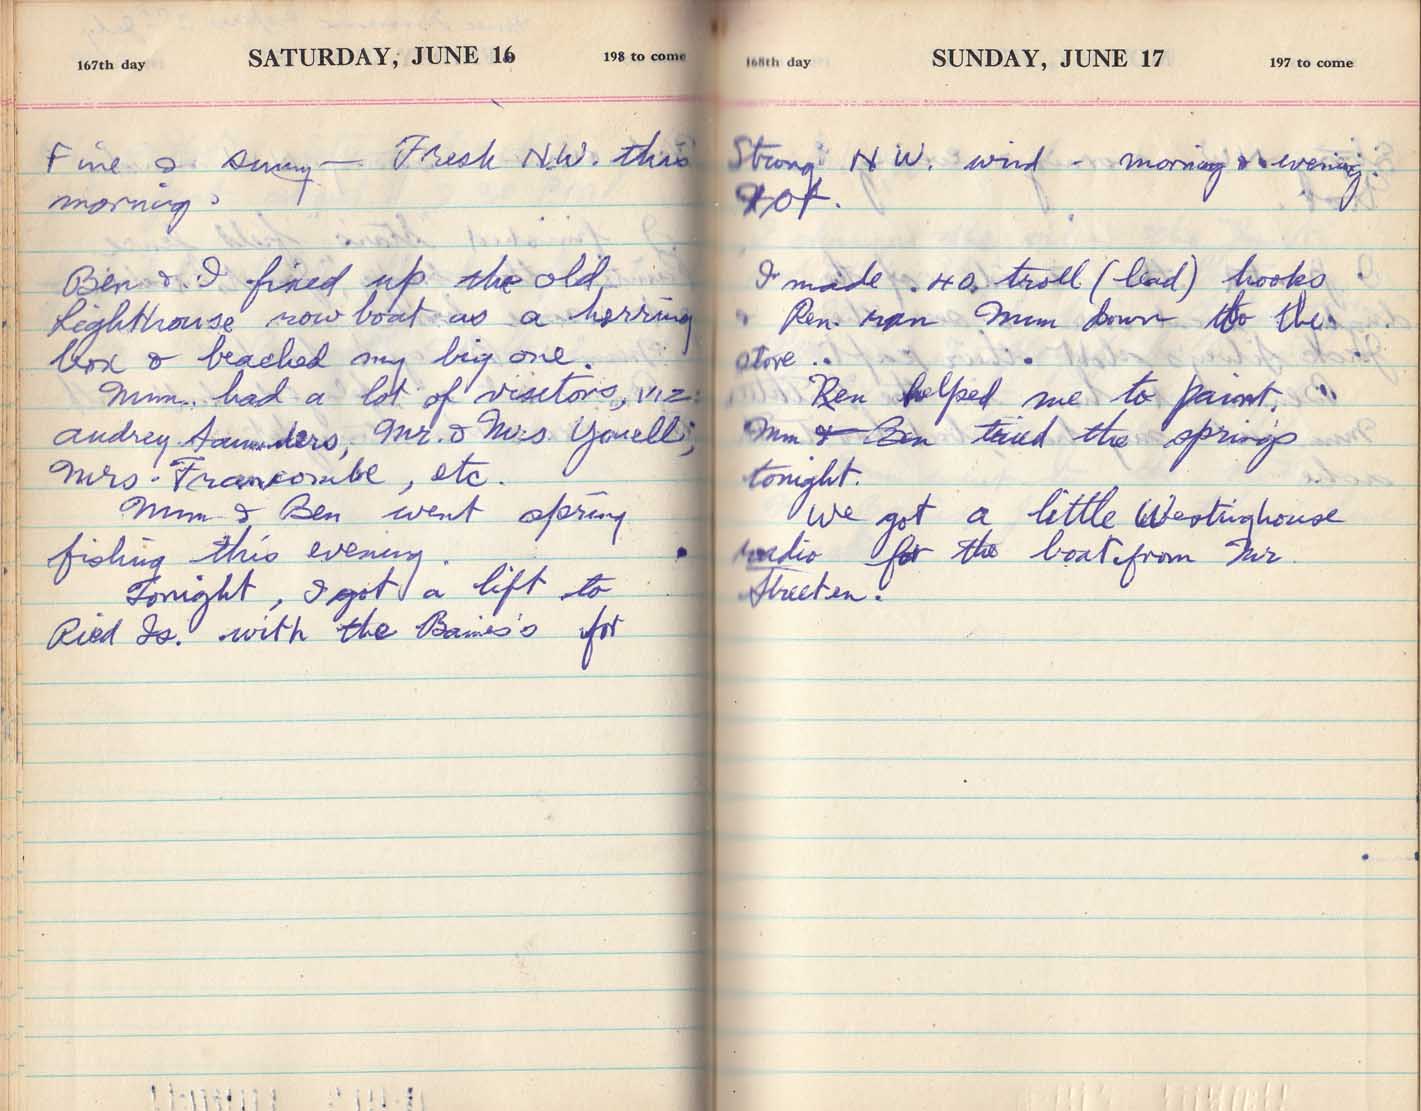 167th day SATURDAY, JUNE 16 198 to come
Fine & sunny — Fresh N.W. this
morning.
Ben & I fixed up the old
Lighthouse row boat as a herring
box & beached my big one.
Mum had a lot of visitors, viz:
Audrey Saunders, Mr. & Mrs. Youell;
Mrs. Francombe, etc.
Mum & Ben went spring
fishing this evening.
Tonight, I got a lift to
Ried Is. with the Baines's for
168th day SUNDAY, JUNE 17 197 to come
Strong N W. wind - morning & evening.
Hot.
I made 40 troll (lead) hooks
Ren. ran Mum down to the
store.
Ren helped me to paint.
Mum & Ben tried the springs
tonight.
We got a little Westinghouse
radio for the boat from Mr.
Streeten.